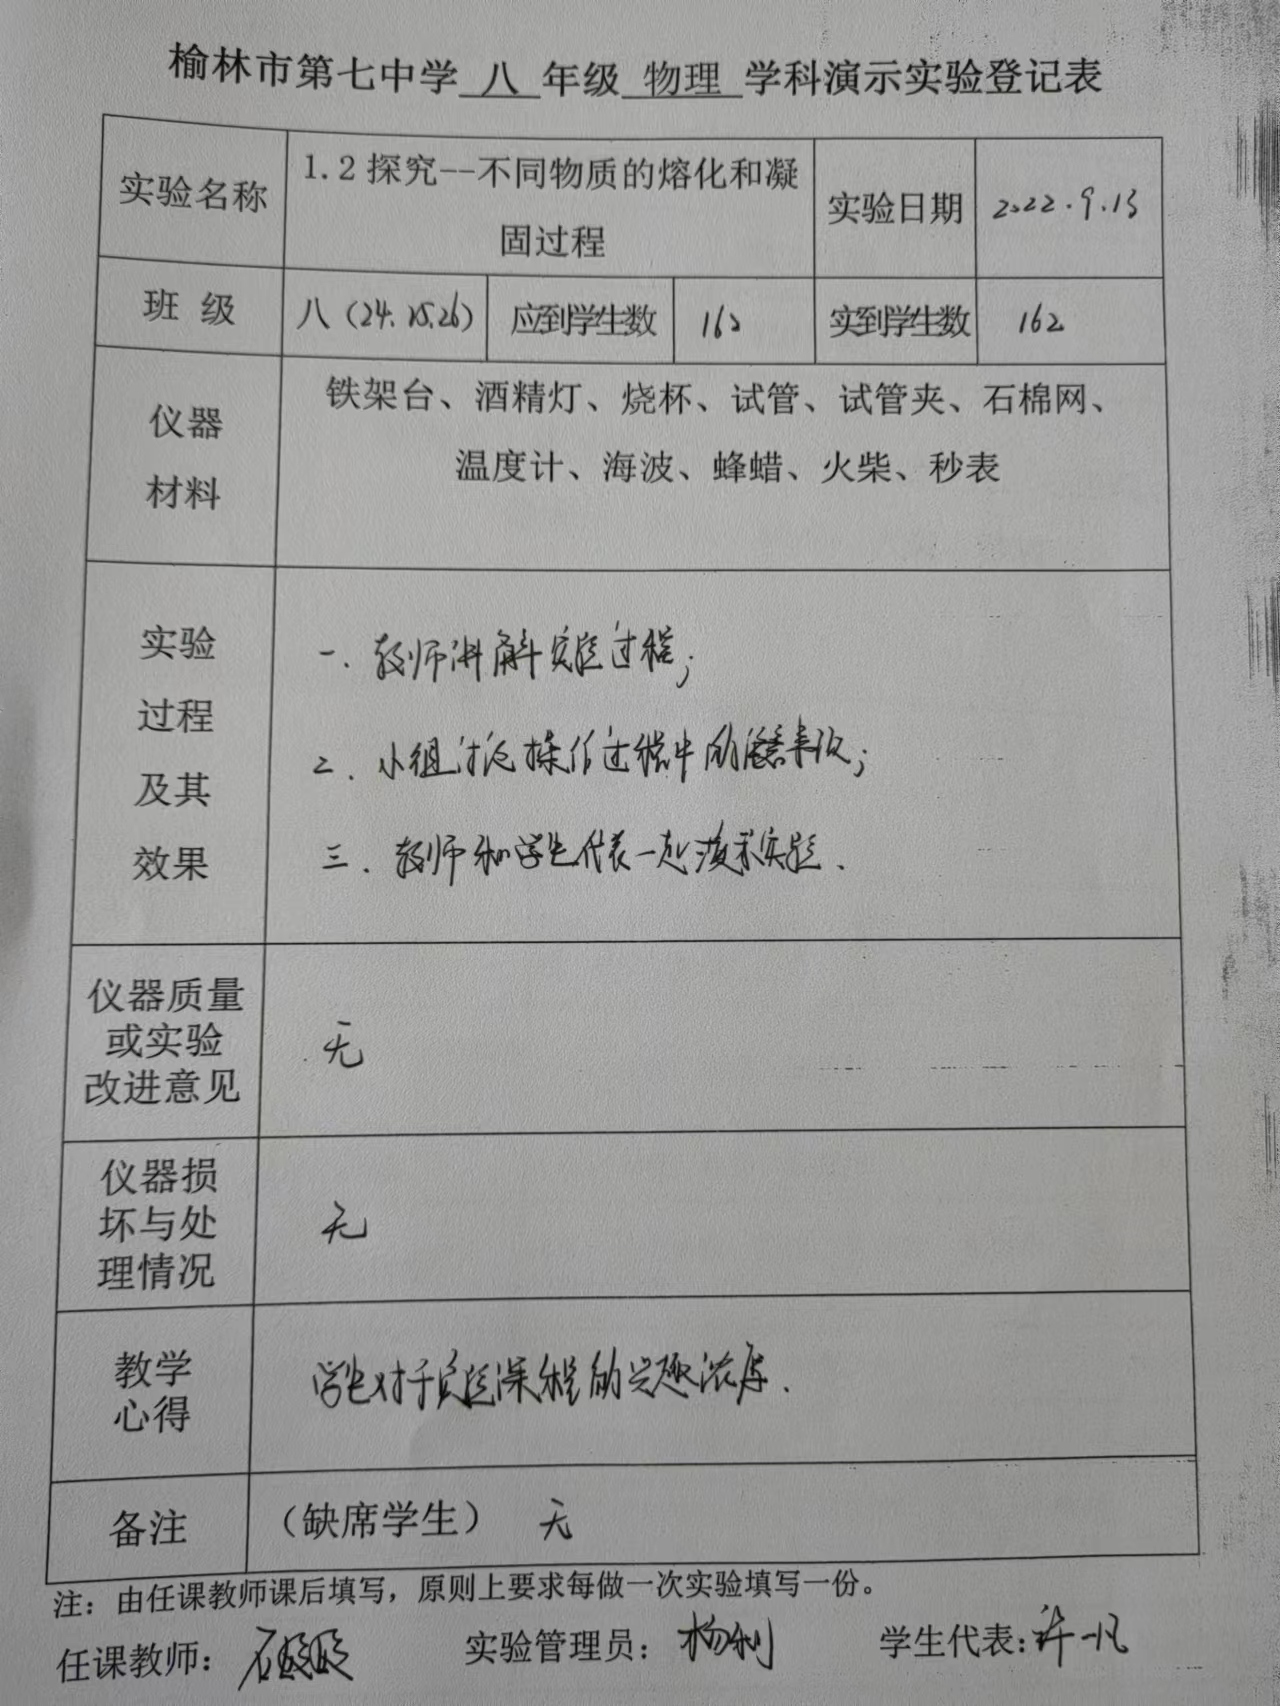 榆林市第七中学 八 年级 物理 学科演示实验登记表
实验名称
1.2 探究--不同物质的熔化和凝
固过程
实验日期
2022.9.13
班 级
八(24.25.26)
应到学生数
162
实到学生数
162
仪器
材料
铁架台、酒精灯、烧杯、试管、试管夹、石棉网、
温度计、海波、蜂蜡、火柴、秒表
实验
过程
及其
效果
一. 教师讲解实验过程;
二. 小组讨论操作过程中的注意事项;
三. 教师和学生代表一起演示实验.
仪器质量
或实验
改进意见
无
仪器损
坏与处
理情况
无
教学
心得
学生对于实验课程的兴趣浓厚.
备注
(缺席学生) 无
注：由任课教师课后填写，原则上要求每做一次实验填写一份。
任课教师: 实验管理员: 杨利 学生代表: 许一凡